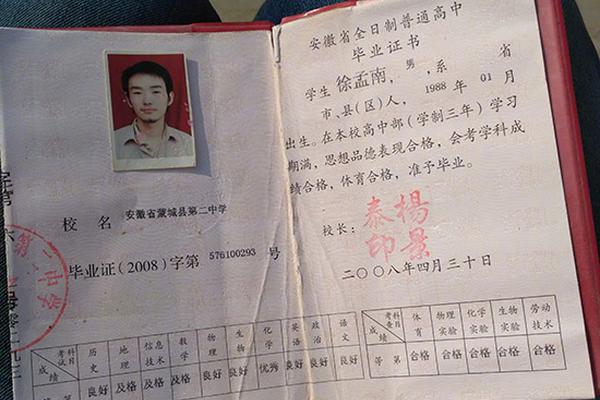 校 名 安徽省蒙城县第二中学
毕业证(2008)字第 576100293 号
第二中学
考试科目 历史 地理 信息技术 数学 物理 生物 化学 英语 政治 语文
成绩
第 良好 及格 及格 及格 良好 良好 优秀 良好 良好 良好
安徽省全日制普通高中
毕业证书
学生 徐孟南,男,系 省
市、县(区)人,1988 年 01 月
出生。在本校高中部(学制三年)学习
期满,思想品德表现合格,会考学科成
绩合格,体育合格,准予毕业。
校长:
楊景泰印
二〇〇八年四月三十日
考查科目 体育 物理实验 化学实验 生物实验 劳动技术
成绩
等 第 合格 合格 合格 合格 合格